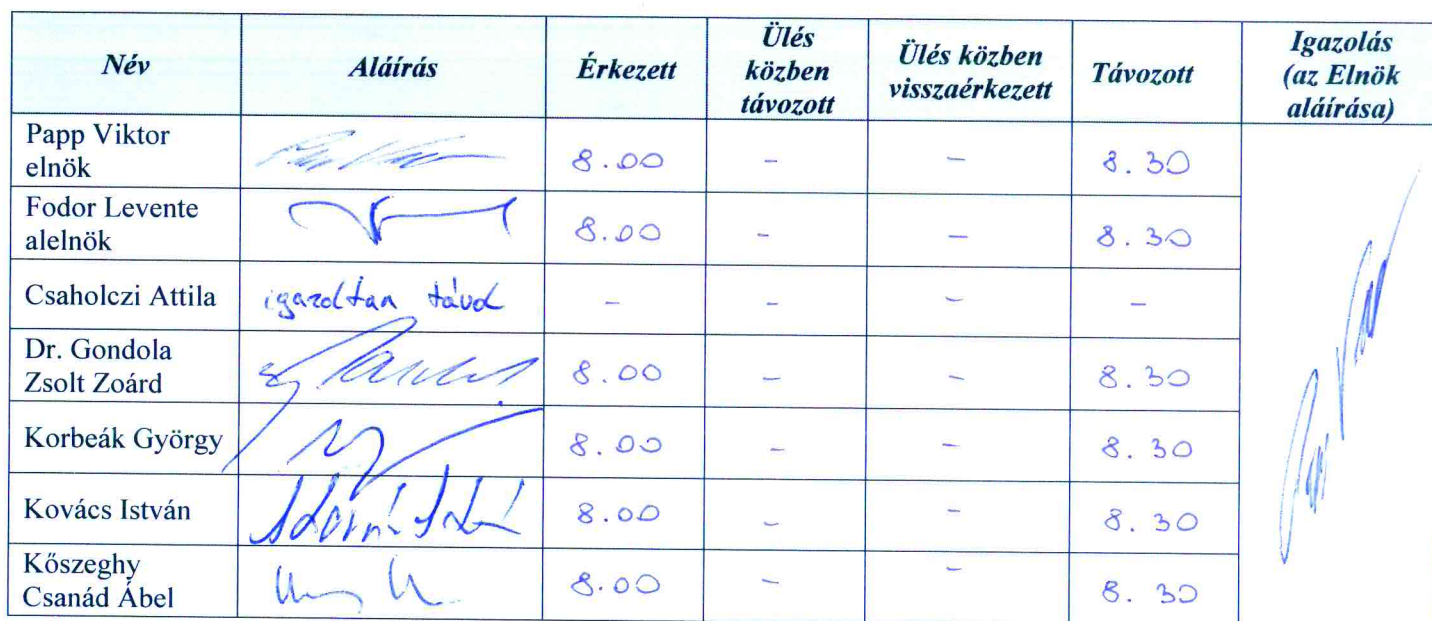 Név Aláírás Érkezett Ülés közben távozott Ülés közben visszaérkezett Távozott Igazolás (az Elnök aláírása)
Papp Viktor elnök 8.00 - - 8.30
Fodor Levente alelnök 8.00 - - 8.30
Csaholczi Attila igazoltan távol - - - -
Dr. Gondola Zsolt Zoárd 8.00 - - 8.30
Korbeák György 8.00 - - 8.30
Kovács István 8.00 - - 8.30
Kőszeghy Csanád Ábel 8.00 - - 8.30